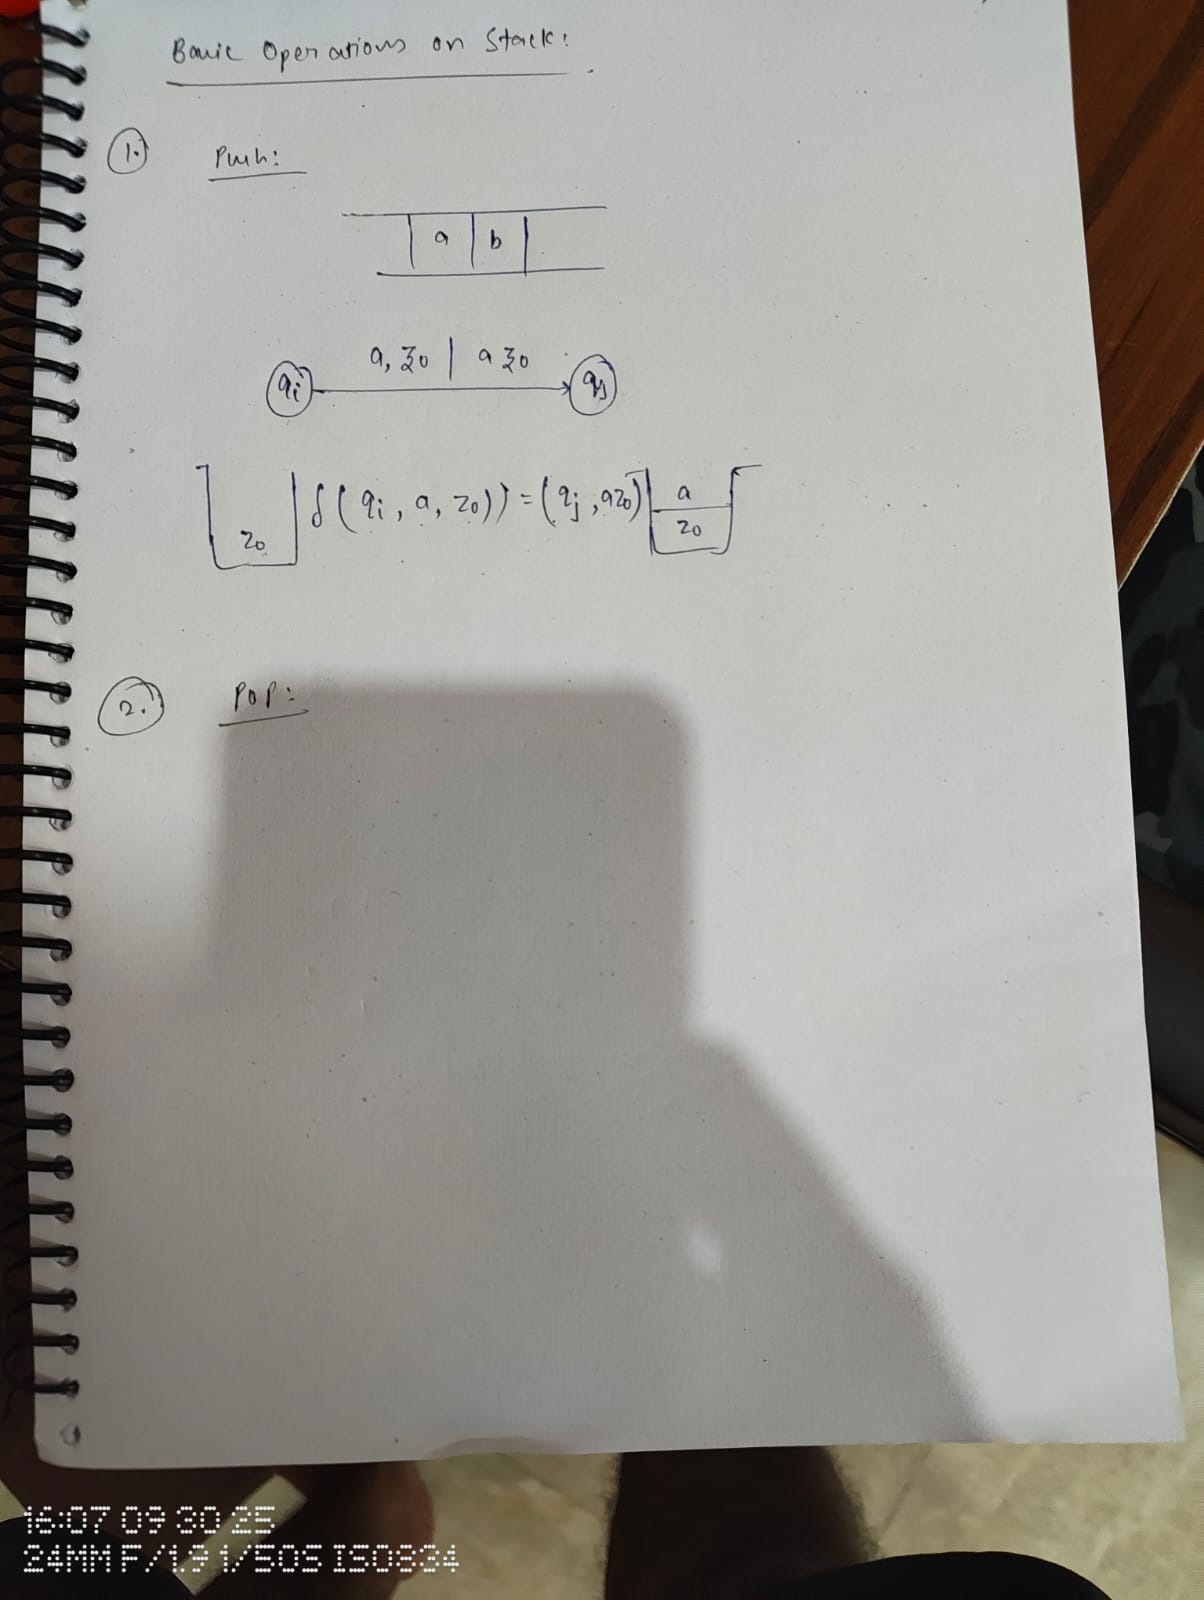 Basic Operations on Stack:
1.
Push:
a b
a, z0 | a z0
qi qj
z0 δ(qi, a, z0)) = (qj, az0) a
z0
2.
POP:
16:07 09 30 25
24MM F/1.9 1/50S ISO834